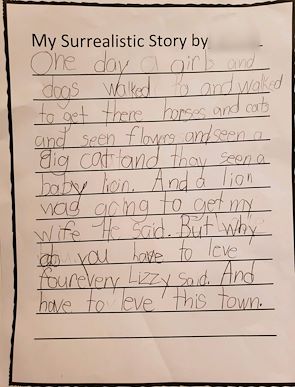 My Surrealistic Story by
One day a girl and
dogs walked to and walked
to get there horses and cats
and seen flowers and seen a
Big cat and thay seen a
baby lion. And a lion
was going to get my
wife He Said. But why
do you have to leve
fourevery Lizzy Said. And
have to leve this town.